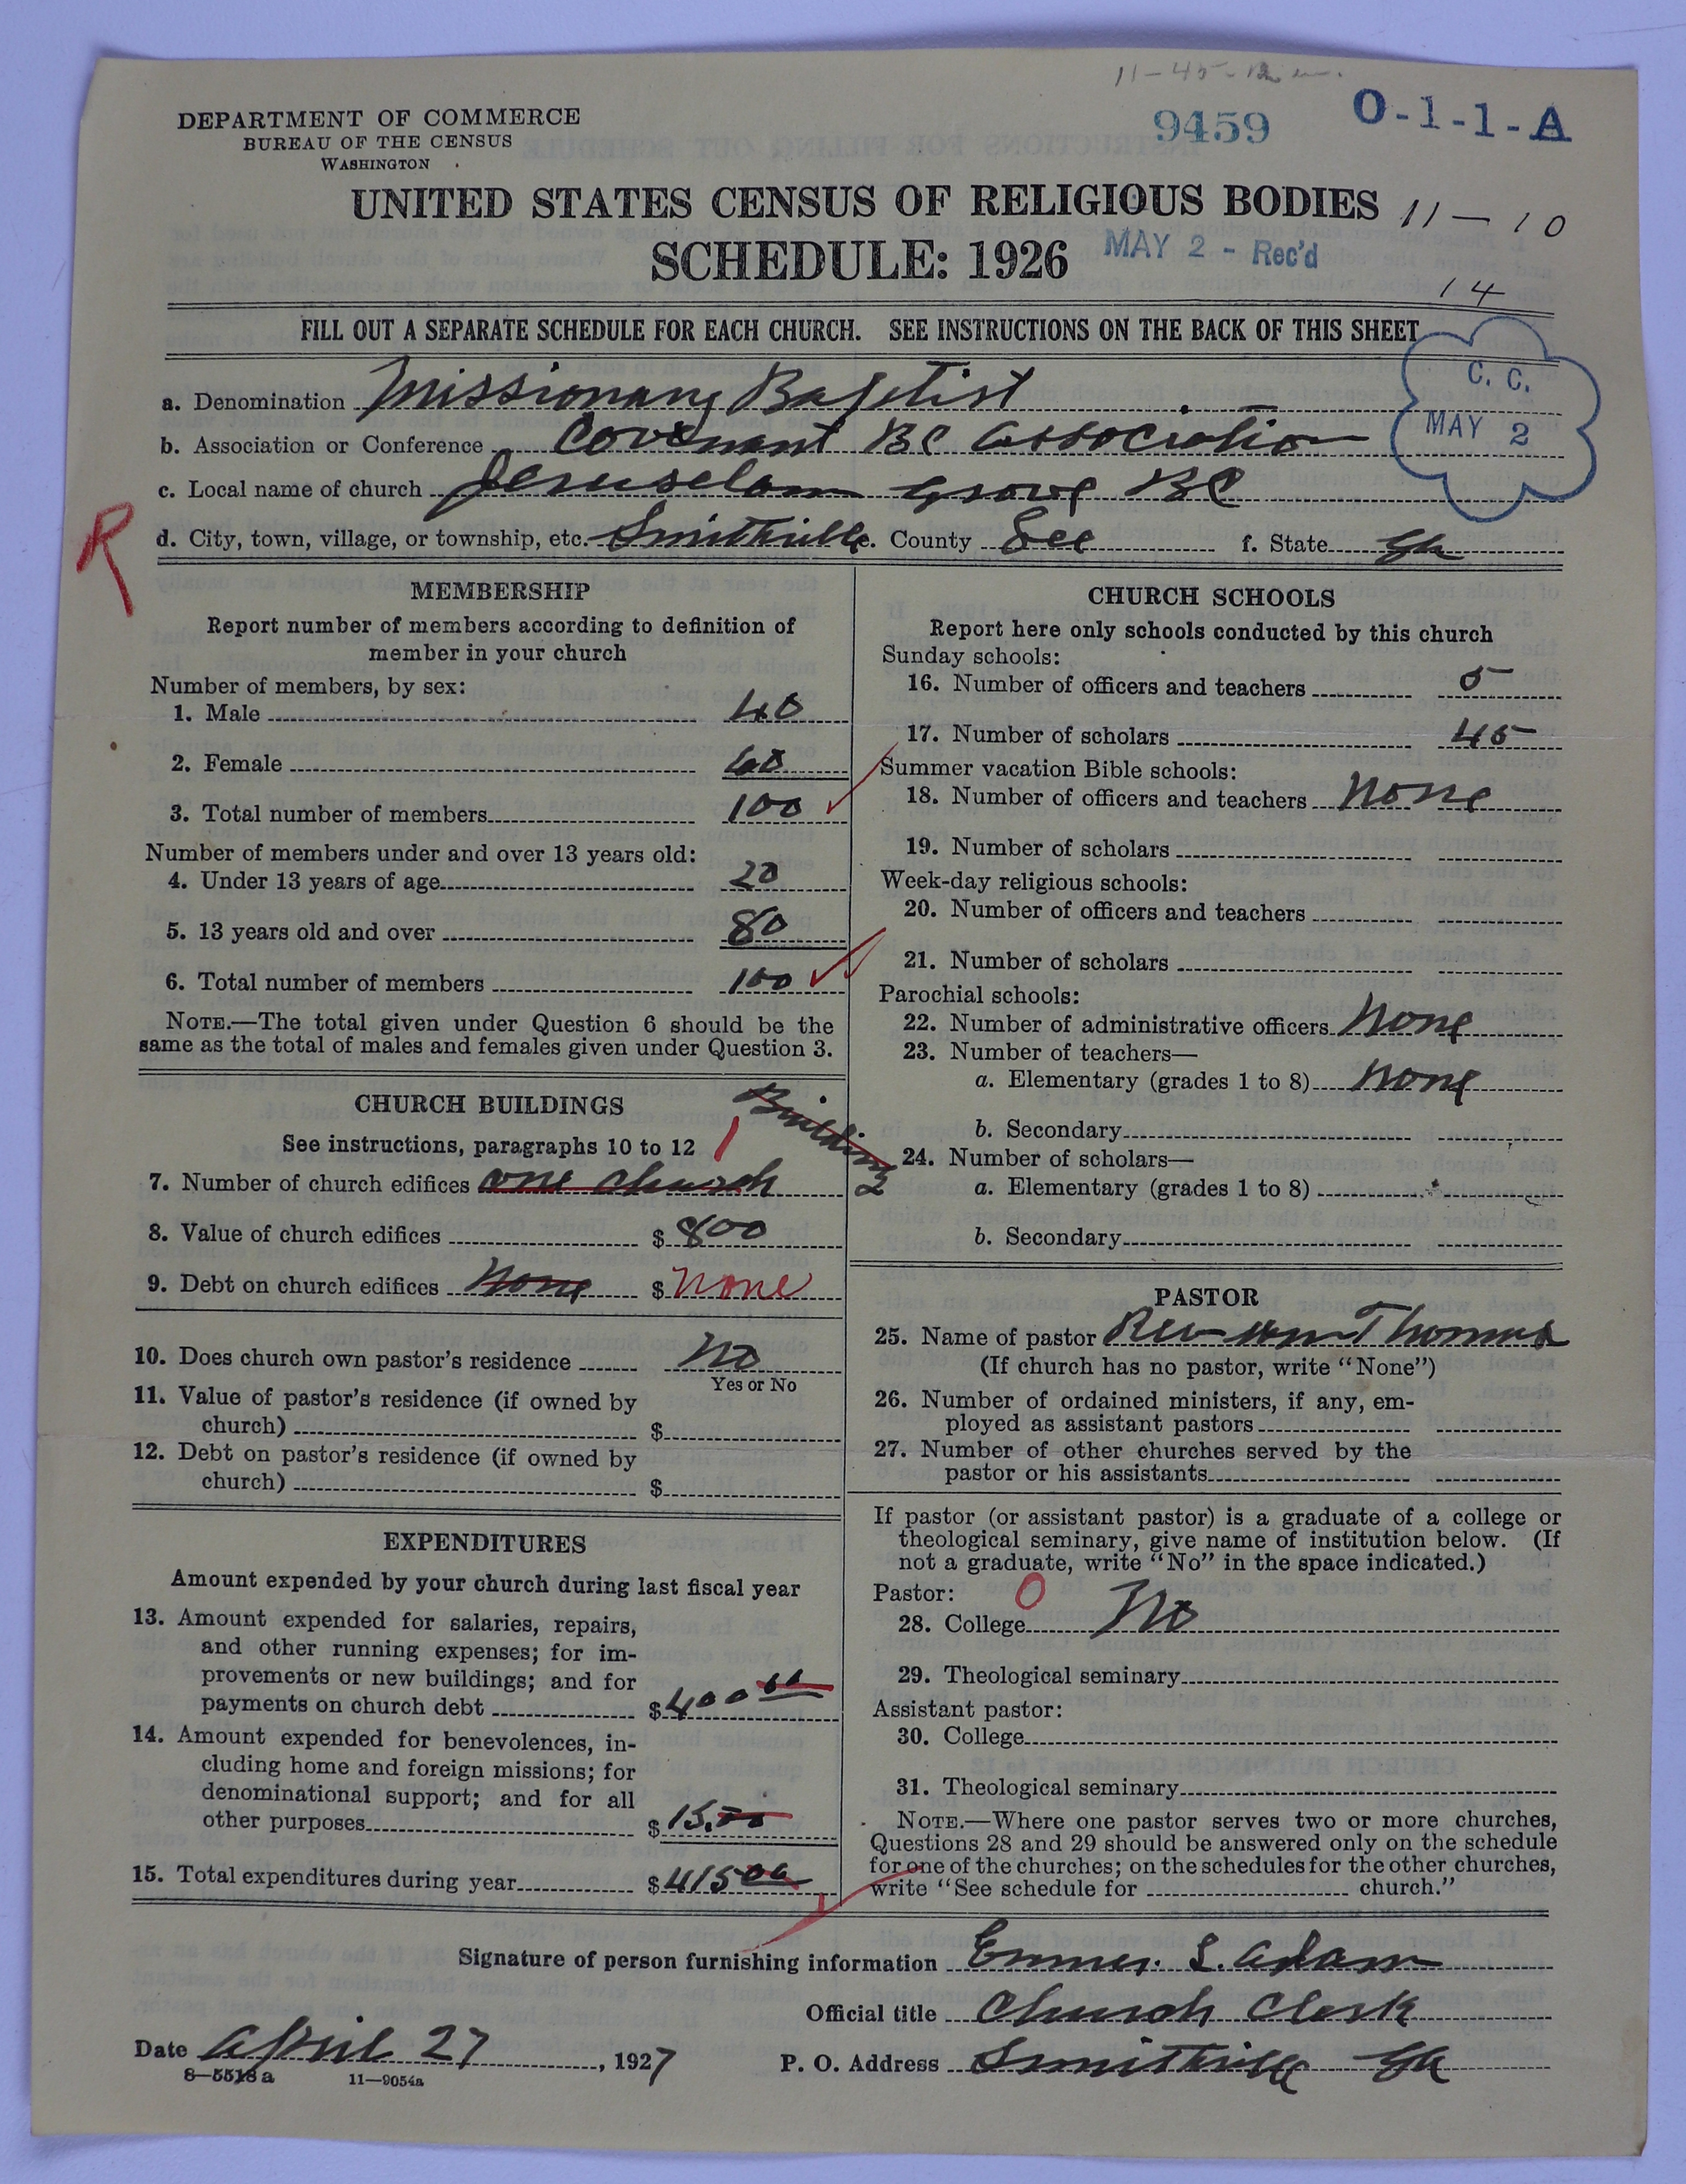 11-45-
DEPARTMENT OF COMMERCE
BUREAU OF THE CENSUS
WASHINGTON
9459
O-1-1-A
UNITED STATES CENSUS OF RELIGIOUS BODIES
11-10
SCHEDULE: 1926
MAY 2 - Rec'd
14
FILL OUT A SEPARATE SCHEDULE FOR EACH CHURCH. SEE INSTRUCTIONS ON THE BACK OF THIS SHEET
C. C.
MAY 2
a. Denomination Missionary Baptist
b. Association or Conference Covenant BC Association
c. Local name of church Jeruselam Grove BC
R
d. City, town, village, or township, etc. Smithville e. County Lee f. State Ga
MEMBERSHIP
Report number of members according to definition of
member in your church
Number of members, by sex:
1. Male 40
2. Female 60
3. Total number of members 100
Number of members under and over 13 years old:
4. Under 13 years of age 20
5. 13 years old and over 80
6. Total number of members 100
NOTE.—The total given under Question 6 should be the
same as the total of males and females given under Question 3.
CHURCH BUILDINGS
See instructions, paragraphs 10 to 12
1 Building
7. Number of church edifices one church
8. Value of church edifices $ 800
9. Debt on church edifices None $ None
10. Does church own pastor's residence No
Yes or No
11. Value of pastor's residence (if owned by
church) $
12. Debt on pastor's residence (if owned by
church) $
EXPENDITURES
Amount expended by your church during last fiscal year
13. Amount expended for salaries, repairs,
and other running expenses; for im-
provements or new buildings; and for
payments on church debt $ 400 00
14. Amount expended for benevolences, in-
cluding home and foreign missions; for
denominational support; and for all
other purposes $ 15.00
15. Total expenditures during year $ 415 00
CHURCH SCHOOLS
Report here only schools conducted by this church
Sunday schools:
16. Number of officers and teachers 5
17. Number of scholars 45
Summer vacation Bible schools:
18. Number of officers and teachers None
19. Number of scholars
Week-day religious schools:
20. Number of officers and teachers
21. Number of scholars
Parochial schools:
22. Number of administrative officers None
23. Number of teachers—
a. Elementary (grades 1 to 8) None
b. Secondary
24. Number of scholars—
a. Elementary (grades 1 to 8)
b. Secondary
PASTOR
25. Name of pastor Rev Wm Thomas
(If church has no pastor, write "None")
26. Number of ordained ministers, if any, em-
ployed as assistant pastors
27. Number of other churches served by the
pastor or his assistants
If pastor (or assistant pastor) is a graduate of a college or
theological seminary, give name of institution below. (If
not a graduate, write "No" in the space indicated.)
Pastor: 0
28. College No
29. Theological seminary
Assistant pastor:
30. College
31. Theological seminary
NOTE.—Where one pastor serves two or more churches,
Questions 28 and 29 should be answered only on the schedule
for one of the churches; on the schedules for the other churches,
write "See schedule for church."
Signature of person furnishing information Emmer. L. Adam
Official title Church Clerk
Date April 27, 1927
P. O. Address Smithville Ga
8-5518a 11-9054a